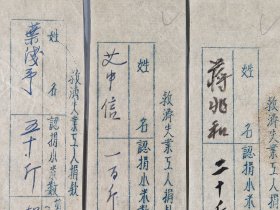 救濟失業工人捐款
姓名 蔣兆和
認捐小米數 二十斤
救濟失業工人捐款
姓名 艾中信
認捐小米數 一百斤
救濟失業工人捐款
姓名 葉淺予
認捐小米數 五十斤